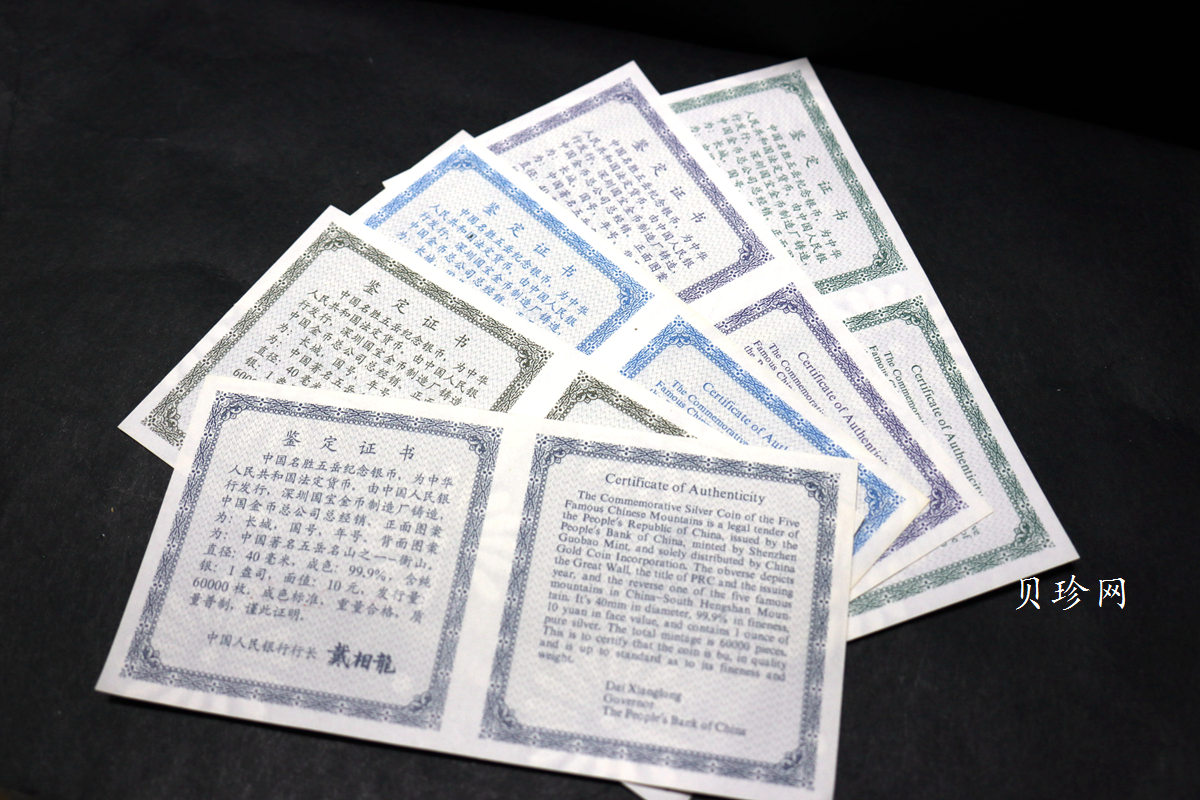 鉴定证书
中国名胜五岳纪念银币，为中华
人民共和国法定货币，由中国人民银
行发行，深圳国宝金币制造厂铸造，
中国金币总公司总经销，正面图案
为：长城，国号，年号，背面图案
为：中国著名五岳名山之一——衡山，
直径：40毫米，成色：99.9%，含纯
银：1盎司，面值：10元，发行量，
60000枚，成色标准，重量合格，质
量普制，谨此证明.
中国人民银行行长 戴相龍
Certificate of Authenticity
The Commemorative Silver Coin of the Five
Famous Chinese Mountains is a legal tender of
the People's Republic of China, issued by the
People's Bank of China, minted by Shenzhen
Guobao Mint, and solely distributed by China
Gold Coin Incorporation. The obverse depicts
the Great Wall, the title of PRC and the issuing
year, and the reverse one of the five famous
mountains in China-South Hengshan Moun-
tain. It's 40mm in diameter, 99.9% in fineness,
10 yuan in face value, and contains 1 ounce of
pure silver. The total mintage is 60000 pieces.
This is to certify that the coin is bu, in quality
and is up to standard as to its fineness and
weight.
Dai Xianglong
Governor
The People's Bank of China
鉴定证书
中国名胜五岳纪念银币，为中华
人民共和国法定货币，由中国人民银
行发行，深圳国宝金币制造厂铸造
中国金币总公司总经销，正面图案
为：长城，国号，年号，
为：中国著名五岳
直径：40毫米
银：1盎司
600
鉴定证书
中国名胜五岳纪念银币，为中华
人民共和国法定货币，由中国人民银
行发行，深圳国宝金币制造厂铸造，
中国金币总公司总经销
The Commemorative
Famous
Certificate of Aut
鉴定证书
中国名胜五岳纪念银币，为中华
人民共和国法定货币，由中国人民银
行发行，深圳国宝金币制造厂铸造，
中国金币总公司总经销，正面图案
为：长城，国号，年号，
Certificate of Authentic
The Commemorative
Famous Chi
the P
鉴定证书
中国名胜五岳纪念银币，为中华
人民共和国法定货币，由中国人民银
行发行，深圳国宝金币制造厂铸造，
中国金币总公司总经销，正
为：长城，国
Certificate of Authentic
The Commemor
Famous
贝珍网